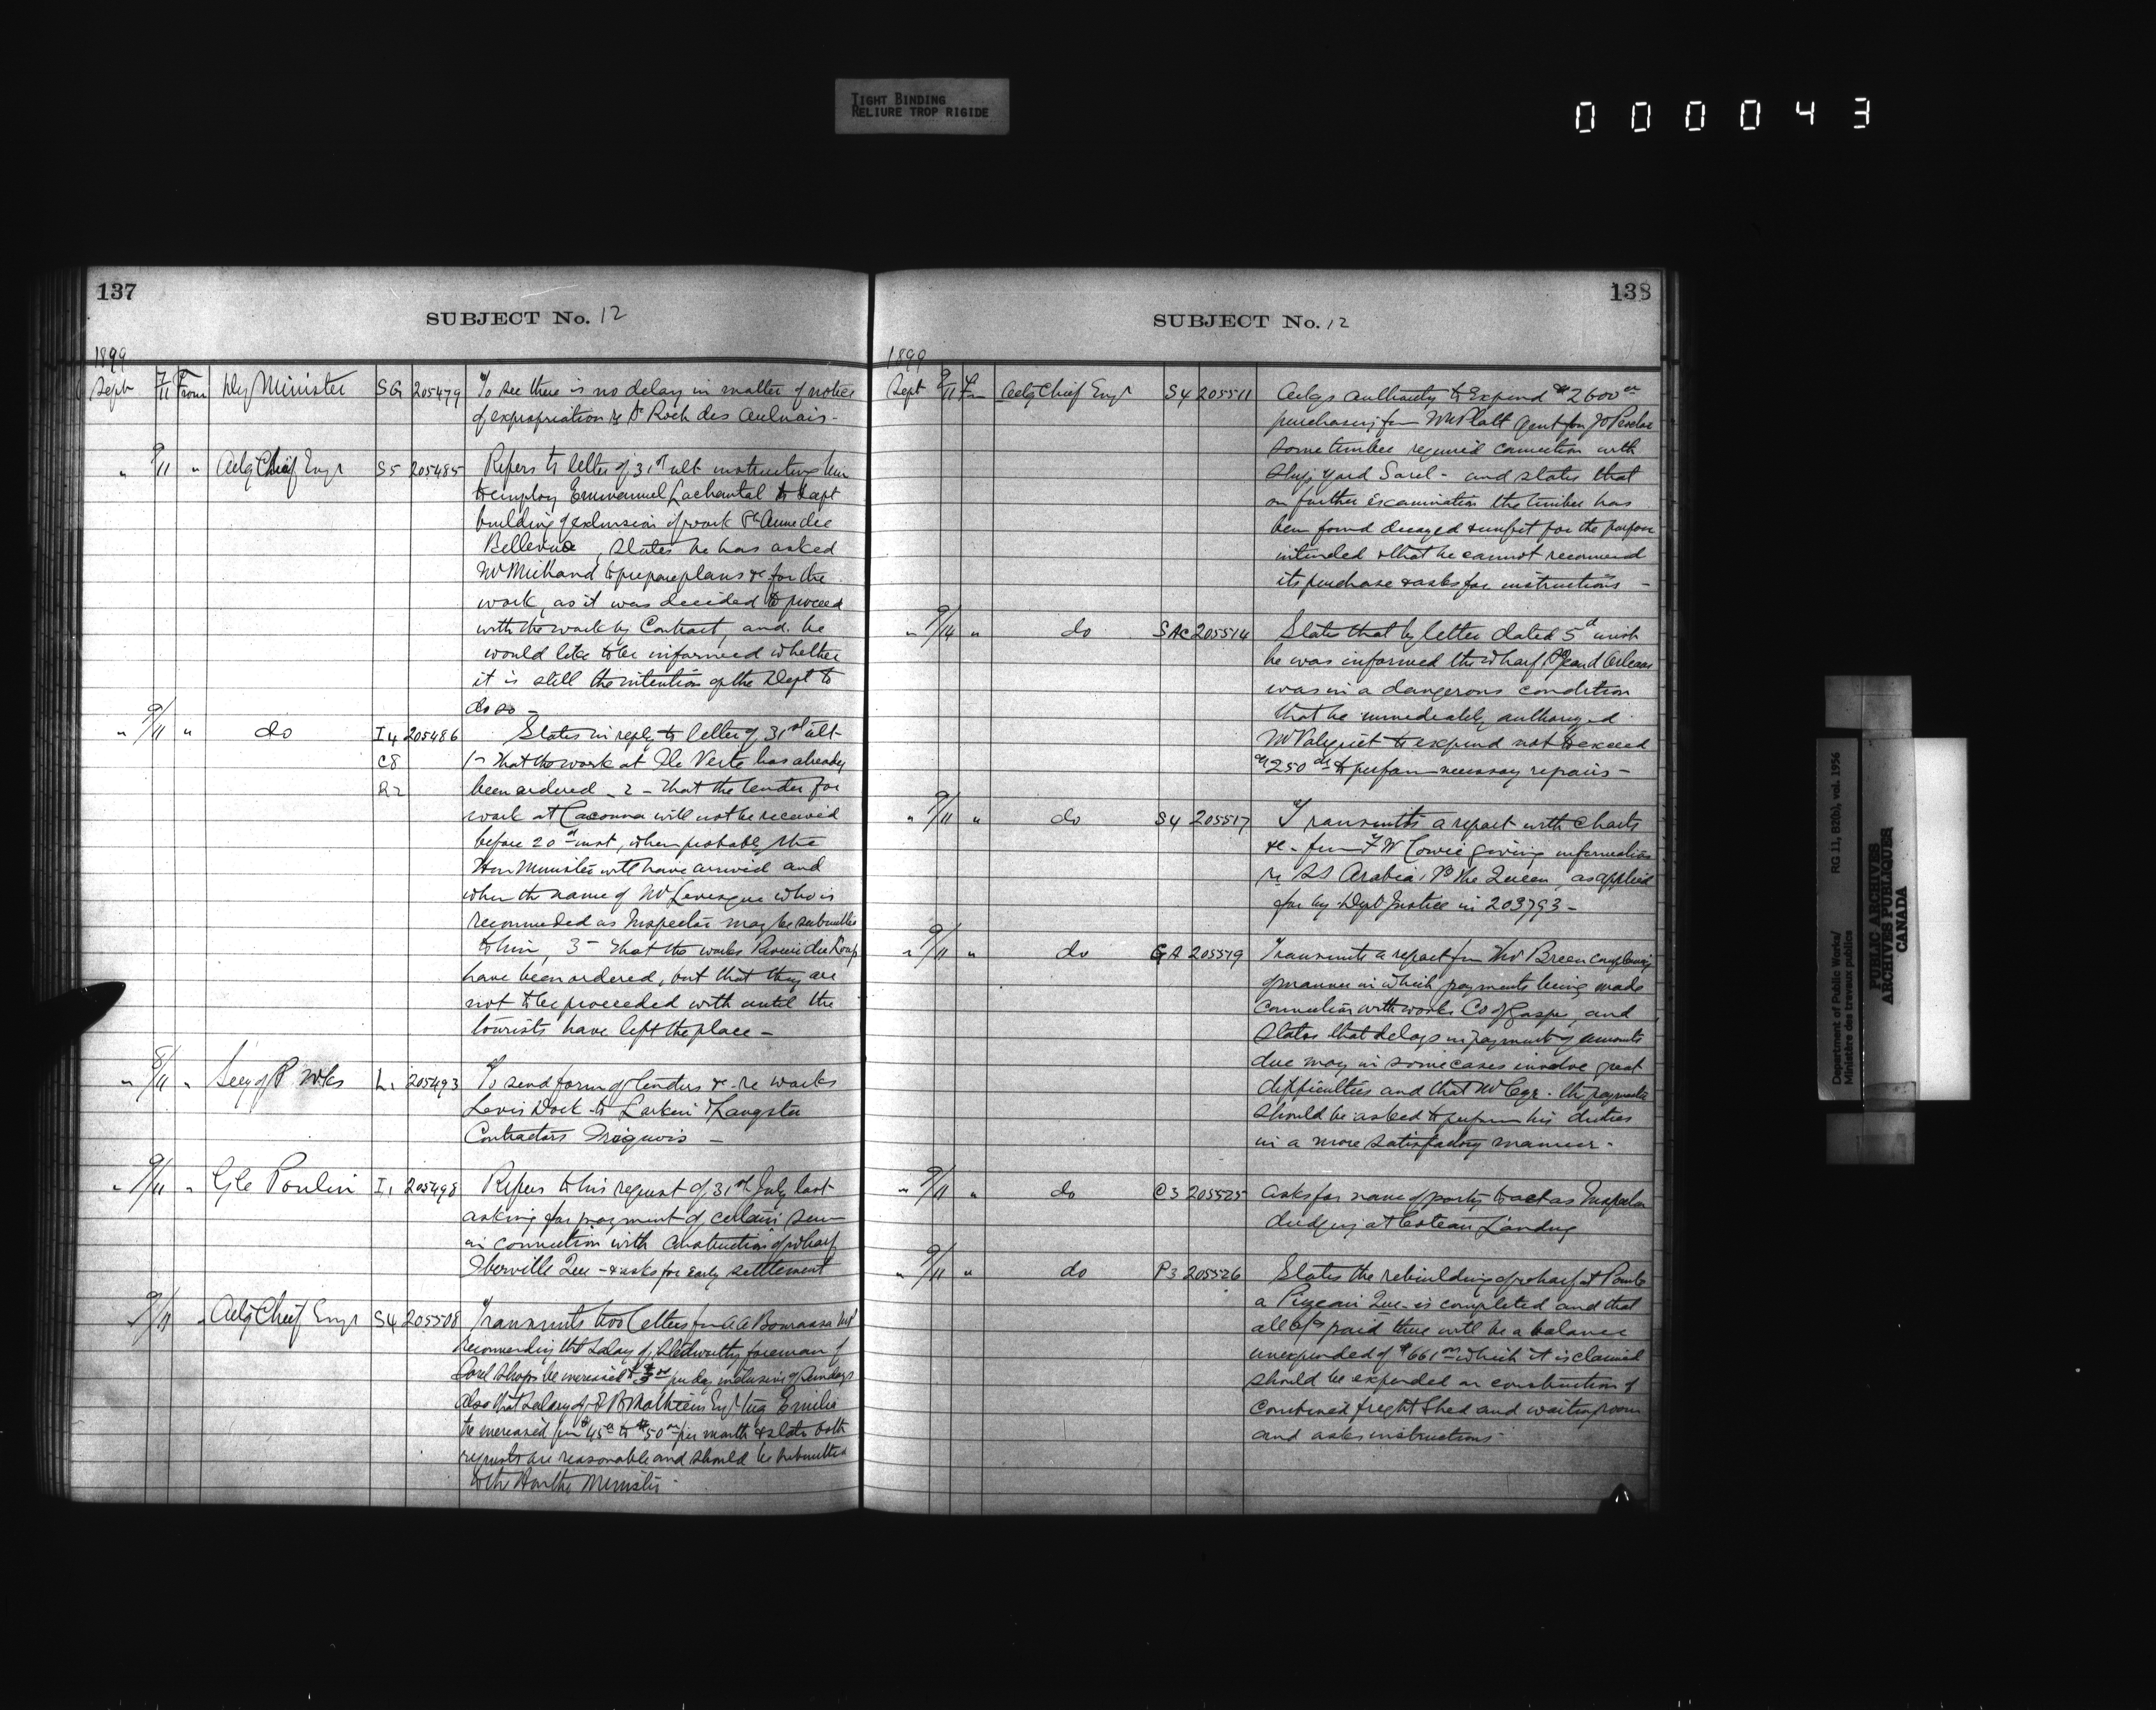 TIGHT BINDING
RELIURE TROP RIGIDE
000043
137
SUBJECT No. 12
1899
Sept 7/11 From Dy Minister SG 205479 To see there is no delay in matter of notice
of expropriation re St Roch des Aulnais -
" 9/11 " Actg Chief Engr S5 205485 Refers to letter of 31st ult instructing him
to employ Emmanuel Lachantal to
building of extension of work Ste Anne de
Bellevue, states he has asked
Mr Michaud to prepare plans &c for the
work, as it was decided to proceed
with the work by Contract, and he
would like to be informed whether
it is still the intention of the Dept to
do so -
" 9/11 " do I4 205486 States in reply to letter of 31st ult
C8 1- That the work at Ile Verte has already
R2 been ordered - 2 - That the tender for
work at Cacouna will not be received
before 20th inst, when probably the
Hon Minister will have arrived and
when the name of Mr Levesque who is
recommended as Inspector may be submitted
to him, 3 - That the works Riviere du Loup
have been ordered, but that they are
not to be proceeded with until the
tourists have left the place -
" 8/11 " Secy of P Wks L1 205493 To send form of tenders &c re works
Levis Dock to Larkin & Sangster
Contractors Iroquois -
" 9/11 " Poulin I1 205498 Refers to his request of 31st July last
asking for payment of certain sum
in connection with construction of wharf
Iberville Que - & asks for early settlement
9/11 " Actg Chief Engr S4 205508 Transmits two letters from A A Bourassa
recommending that salary of foreman of
Sorel Shops be increased to per day inclusive of Sundays
also that salary of Mathieu Engr tug Emilia
be increased from $45 to $50 per month & states both
requests are reasonable and should be submitted
to the Hon the Minister -
138
SUBJECT No. 12
1899
Sept 9/11 Actg Chief Engr S4 205511 authority to Expend $2600
purchasing from Wm Platt Agent for
some timber required connection with
Ship yard Sorel - and states that
on further examination the timber has
been found decayed & unfit for the purpose
intended & that he cannot recommend
its purchase & asks for instructions -
" 9/14 " do SAC 205514 States that by letter dated 5th inst
he was informed the wharf Orleans
was in a dangerous condition
that he immediately authorized
Mr Valiquet to expend not to exceed
$250 to perform necessary repairs -
" 9/11 " do S4 205517 Transmits a report with Charts
&c - from F W Cowie giving information
re SS Arabia vs The Queen, as applied
for by Dept Justice in 203793 -
" 9/11 " do GA 205519 Transmits a report from Thos Breen complaining
of manner in which payments being made
connection with works Co of Gaspe, and
states that delays in payment of amounts
due may in some cases involve great
difficulties and that Mr
should be asked to perform his duties
in a more satisfactory manner -
" 9/11 " do C3 205525 Asks for name of party to act as Inspector
dredging at Coteau Landing
" 9/11 " do P3 205526 States the rebuilding of wharf at Pointe
a Pizeau Que - is completed and that
all a/cs paid there will be a balance
unexpended of $661 which it is claimed
should be expended on construction of
combined freight Shed and waiting room
and asks instructions
Department of Public Works/ RG 11, B2(b), vol. 1956
Ministère des travaux publics
PUBLIC ARCHIVES
ARCHIVES PUBLIQUES
CANADA